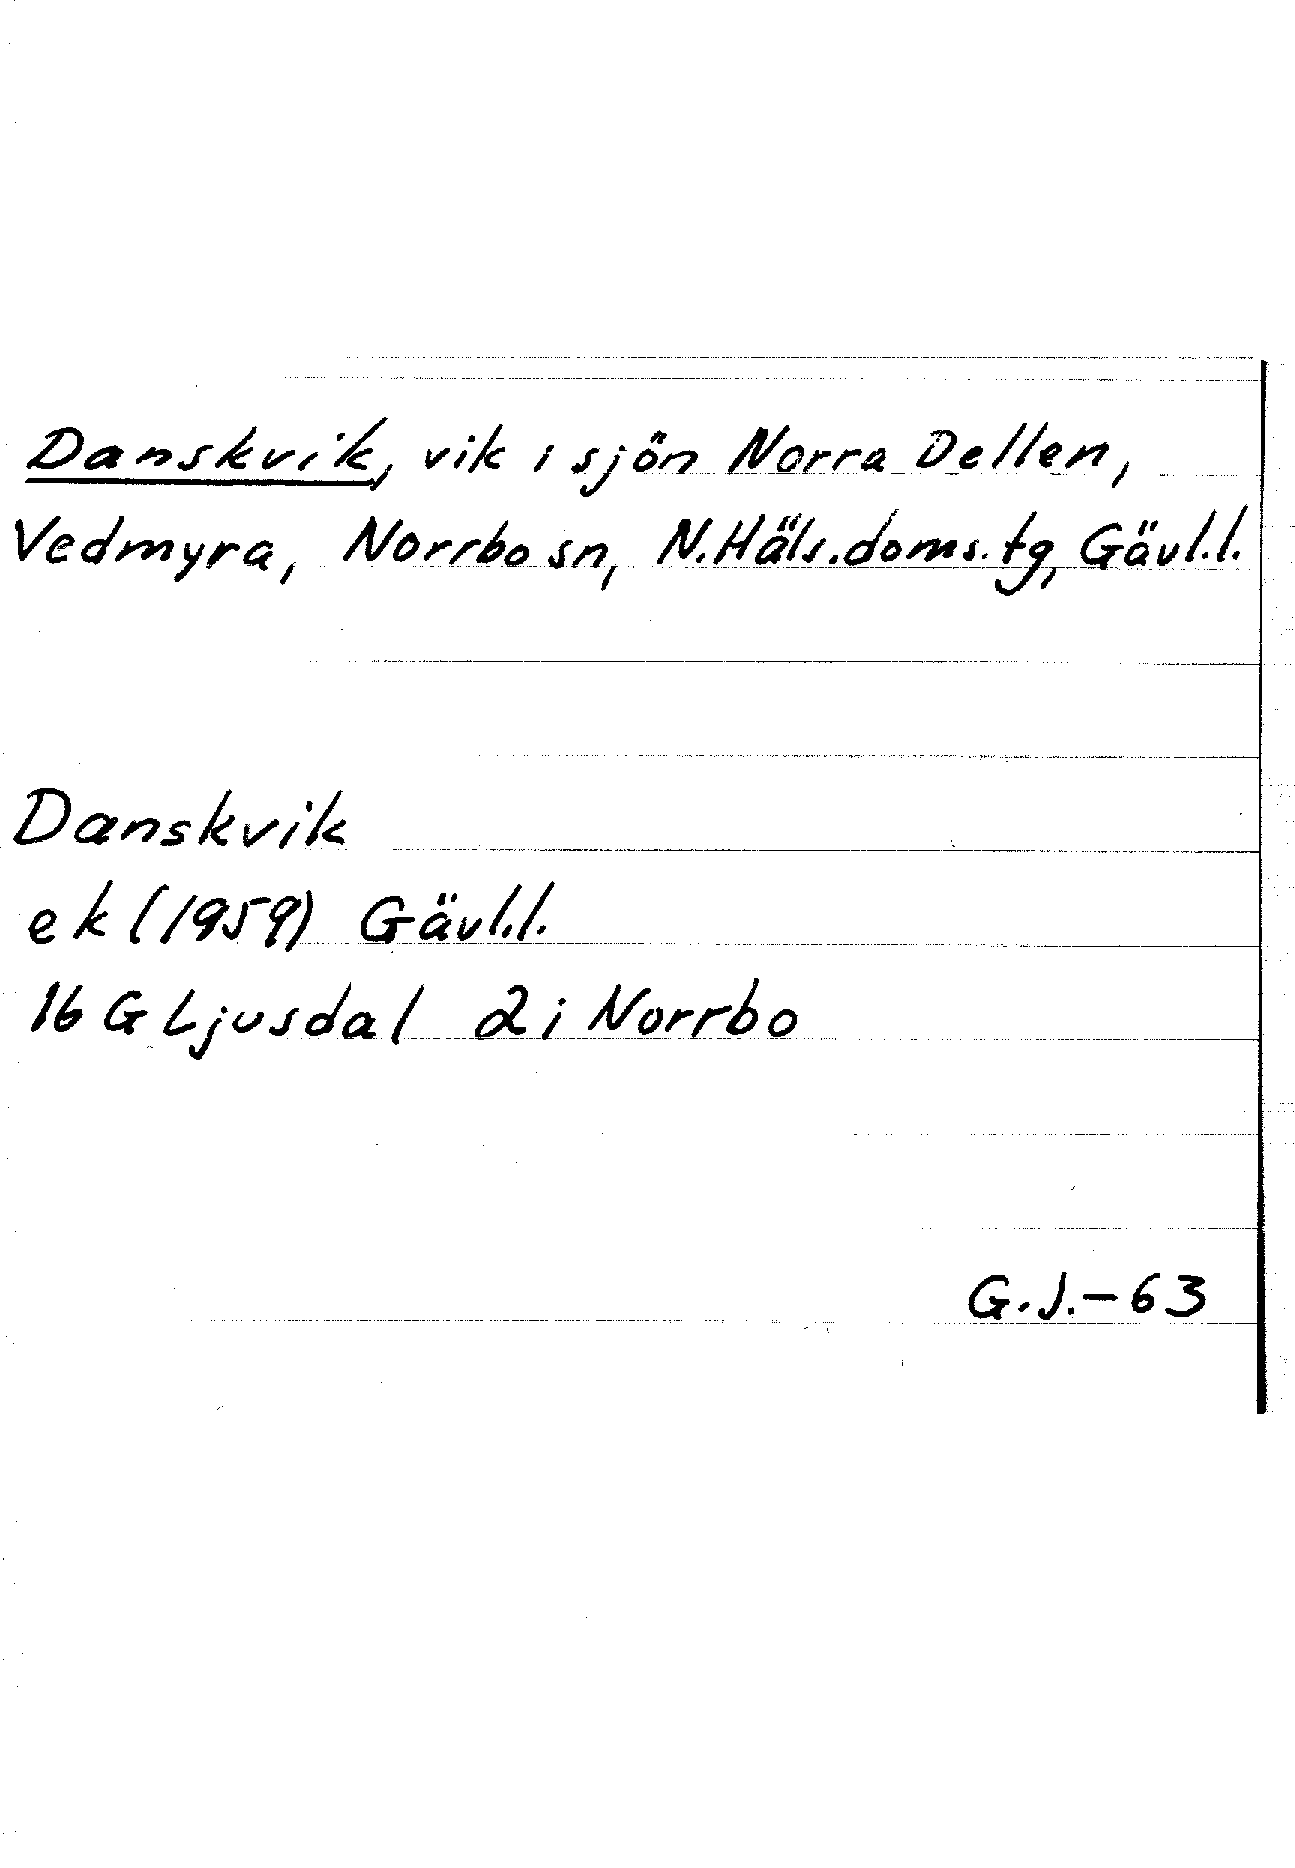 Danskvik, vik i sjön Norra Dellen,
Vedmyra, Norrbo sn, N.Häls.doms.tg, Gävl.l.
Danskvik
ek (1959) Gävl.l.
16 G Ljusdal 2 i Norrbo
G.J.-63